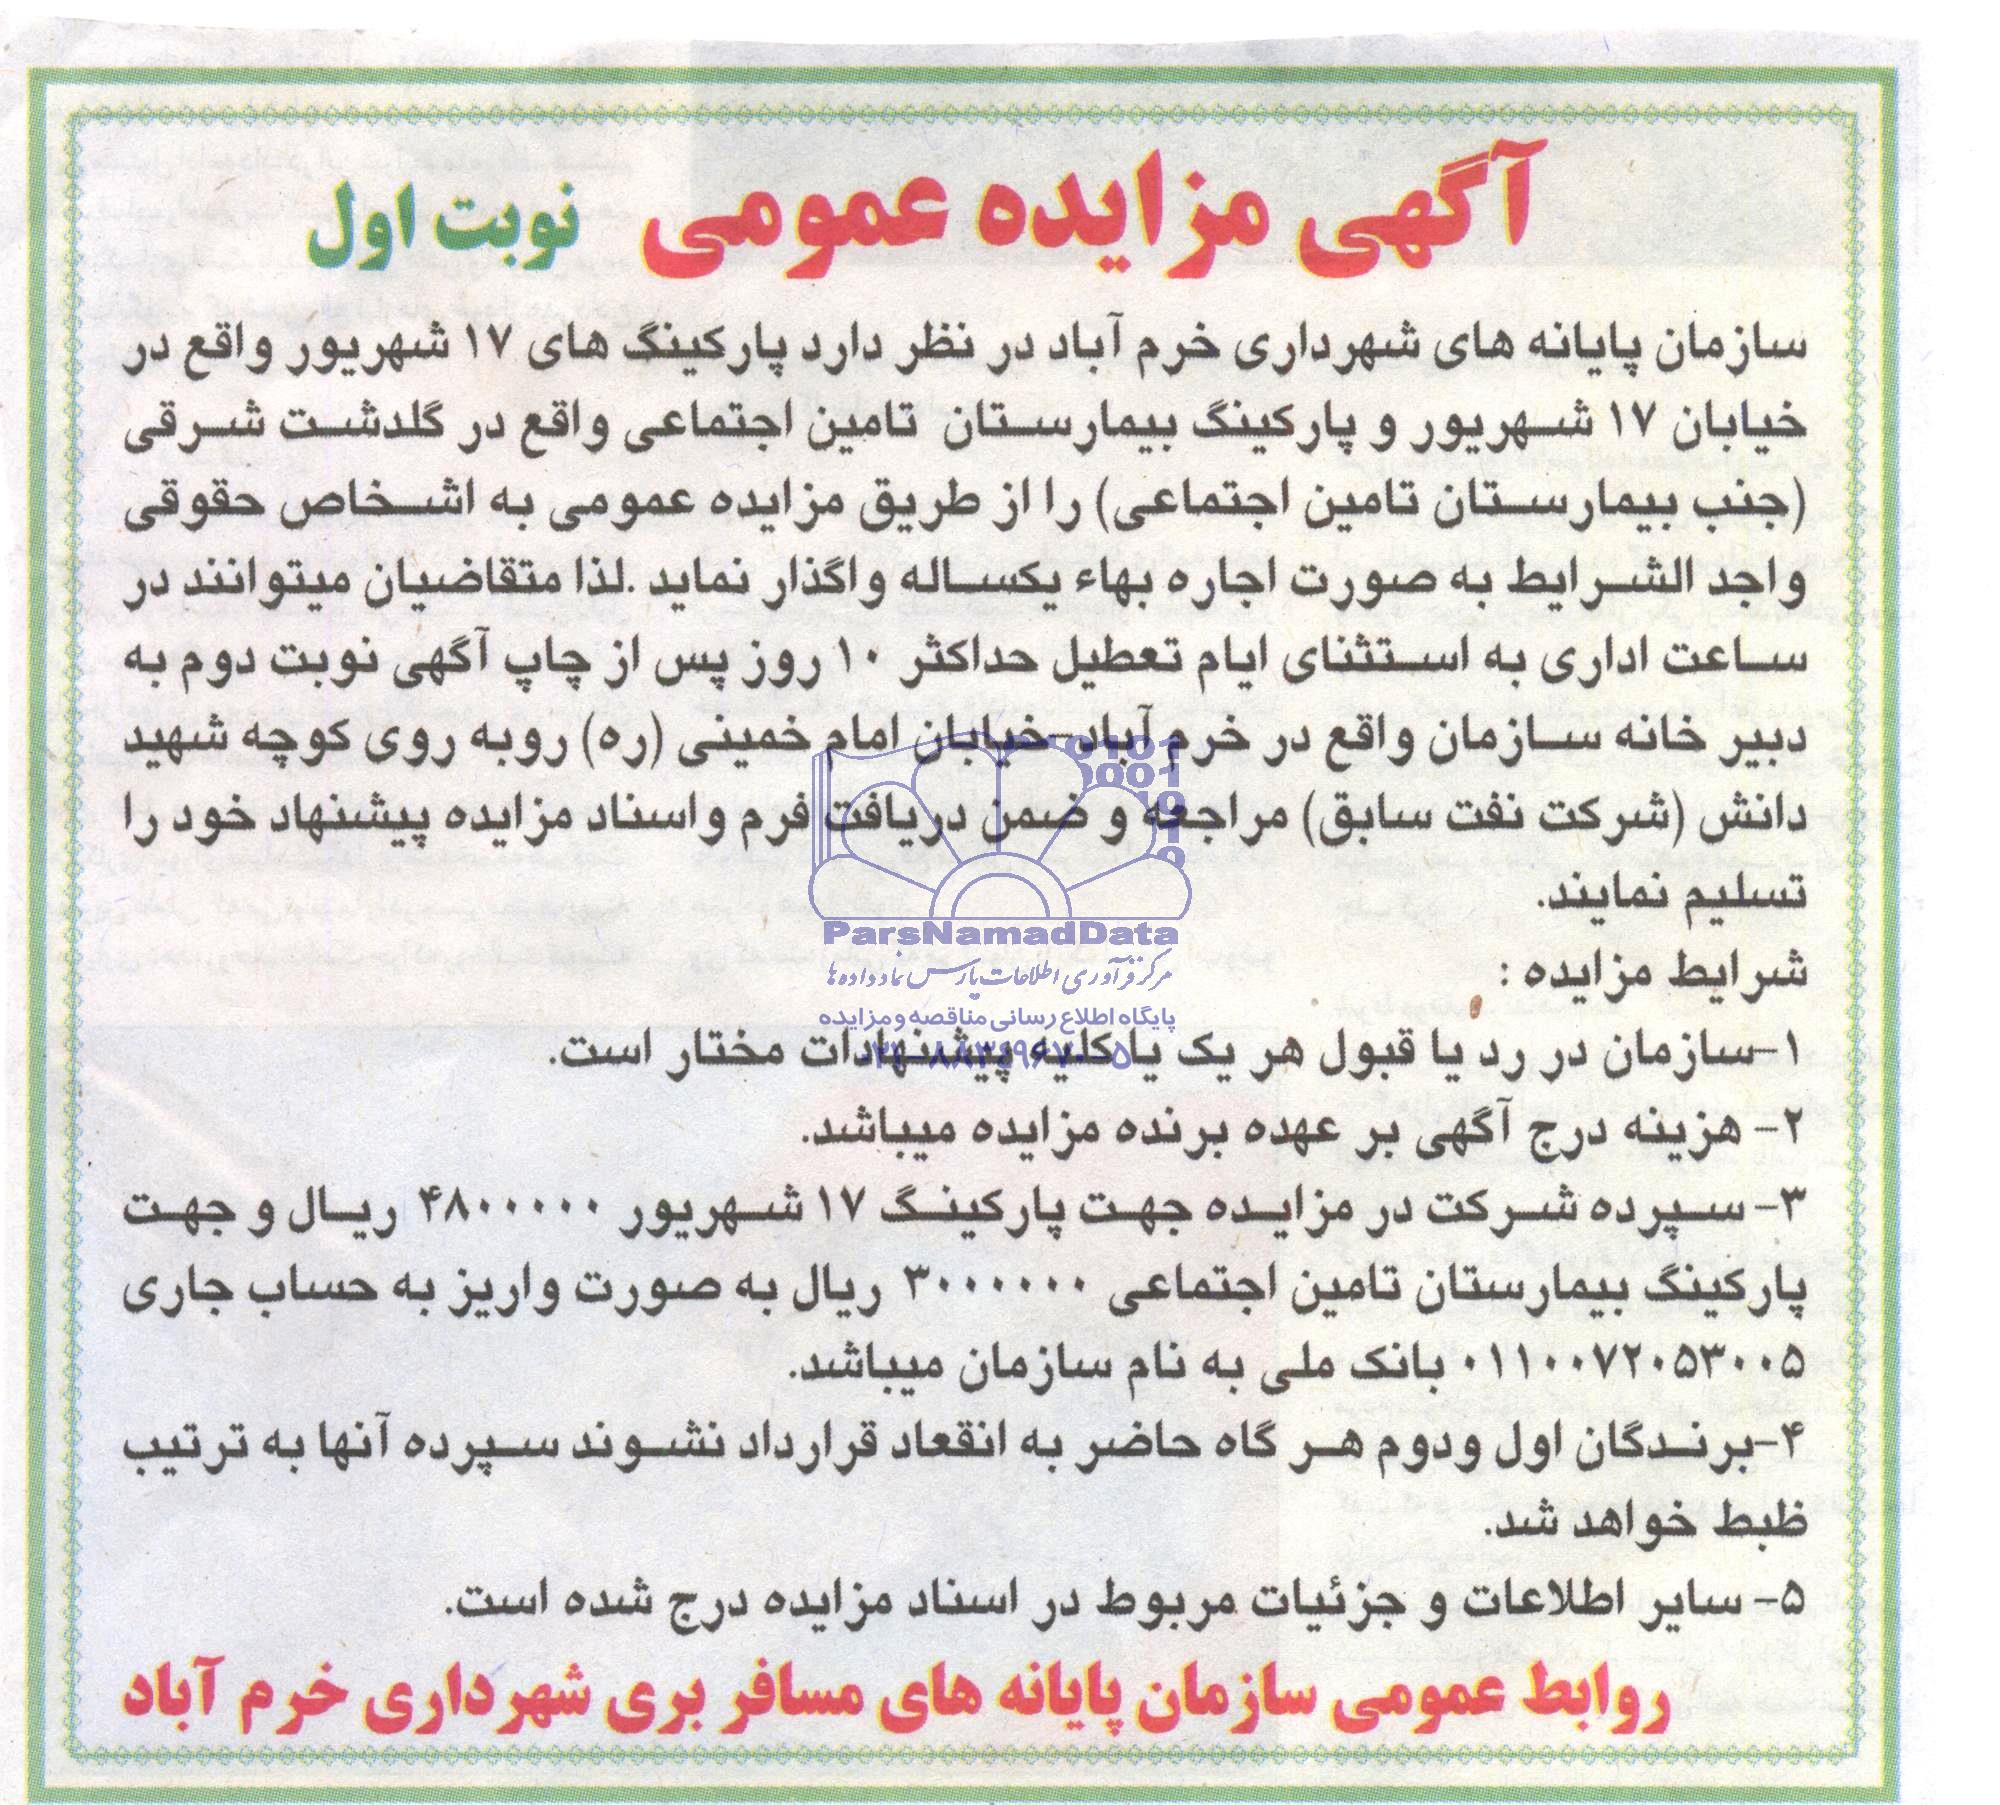 آگهی مزایده عمومی نوبت اول
سازمان پایانه های شهرداری خرم آباد در نظر دارد پارکینگ های ۱۷ شهریور واقع در
خیابان ۱۷ شهریور و پارکینگ بیمارستان تامین اجتماعی واقع در گلدشت شرقی
(جنب بیمارستان تامین اجتماعی) را از طریق مزایده عمومی به اشخاص حقوقی
واجد الشرایط به صورت اجاره بهاء یکساله واگذار نماید .لذا متقاضیان میتوانند در
ساعت اداری به استثنای ایام تعطیل حداکثر ۱۰ روز پس از چاپ آگهی نوبت دوم به
دبیر خانه سازمان واقع در خرم آباد-خیابان امام خمینی (ره) روبه روی کوچه شهید
دانش (شرکت نفت سابق) مراجعه و ضمن دریافت فرم واسناد مزایده پیشنهاد خود را
تسلیم نمایند.
ParsNamadData
مرکز فرآوری اطلاعات پارس نماد داده ها
شرایط مزایده :
پایگاه اطلاع رسانی مناقصه و مزایده
۱-سازمان در رد یا قبول هر یک یا کلیه پیشنهادات مختار است.
۲- هزینه درج آگهی بر عهده برنده مزایده میباشد.
۳- سپرده شرکت در مزایده جهت پارکینگ ۱۷ شهریور ۴۸۰۰۰۰۰۰ ریال و جهت
پارکینگ بیمارستان تامین اجتماعی ۳۰۰۰۰۰۰ ریال به صورت واریز به حساب جاری
۰۱۱۰۰۷۲۰۵۳۰۰۵ بانک ملی به نام سازمان میباشد.
۴-برندگان اول ودوم هر گاه حاضر به انقعاد قرارداد نشوند سپرده آنها به ترتیب
ظبط خواهد شد.
۵- سایر اطلاعات و جزئیات مربوط در اسناد مزایده درج شده است.
روابط عمومی سازمان پایانه های مسافر بری شهرداری خرم آباد